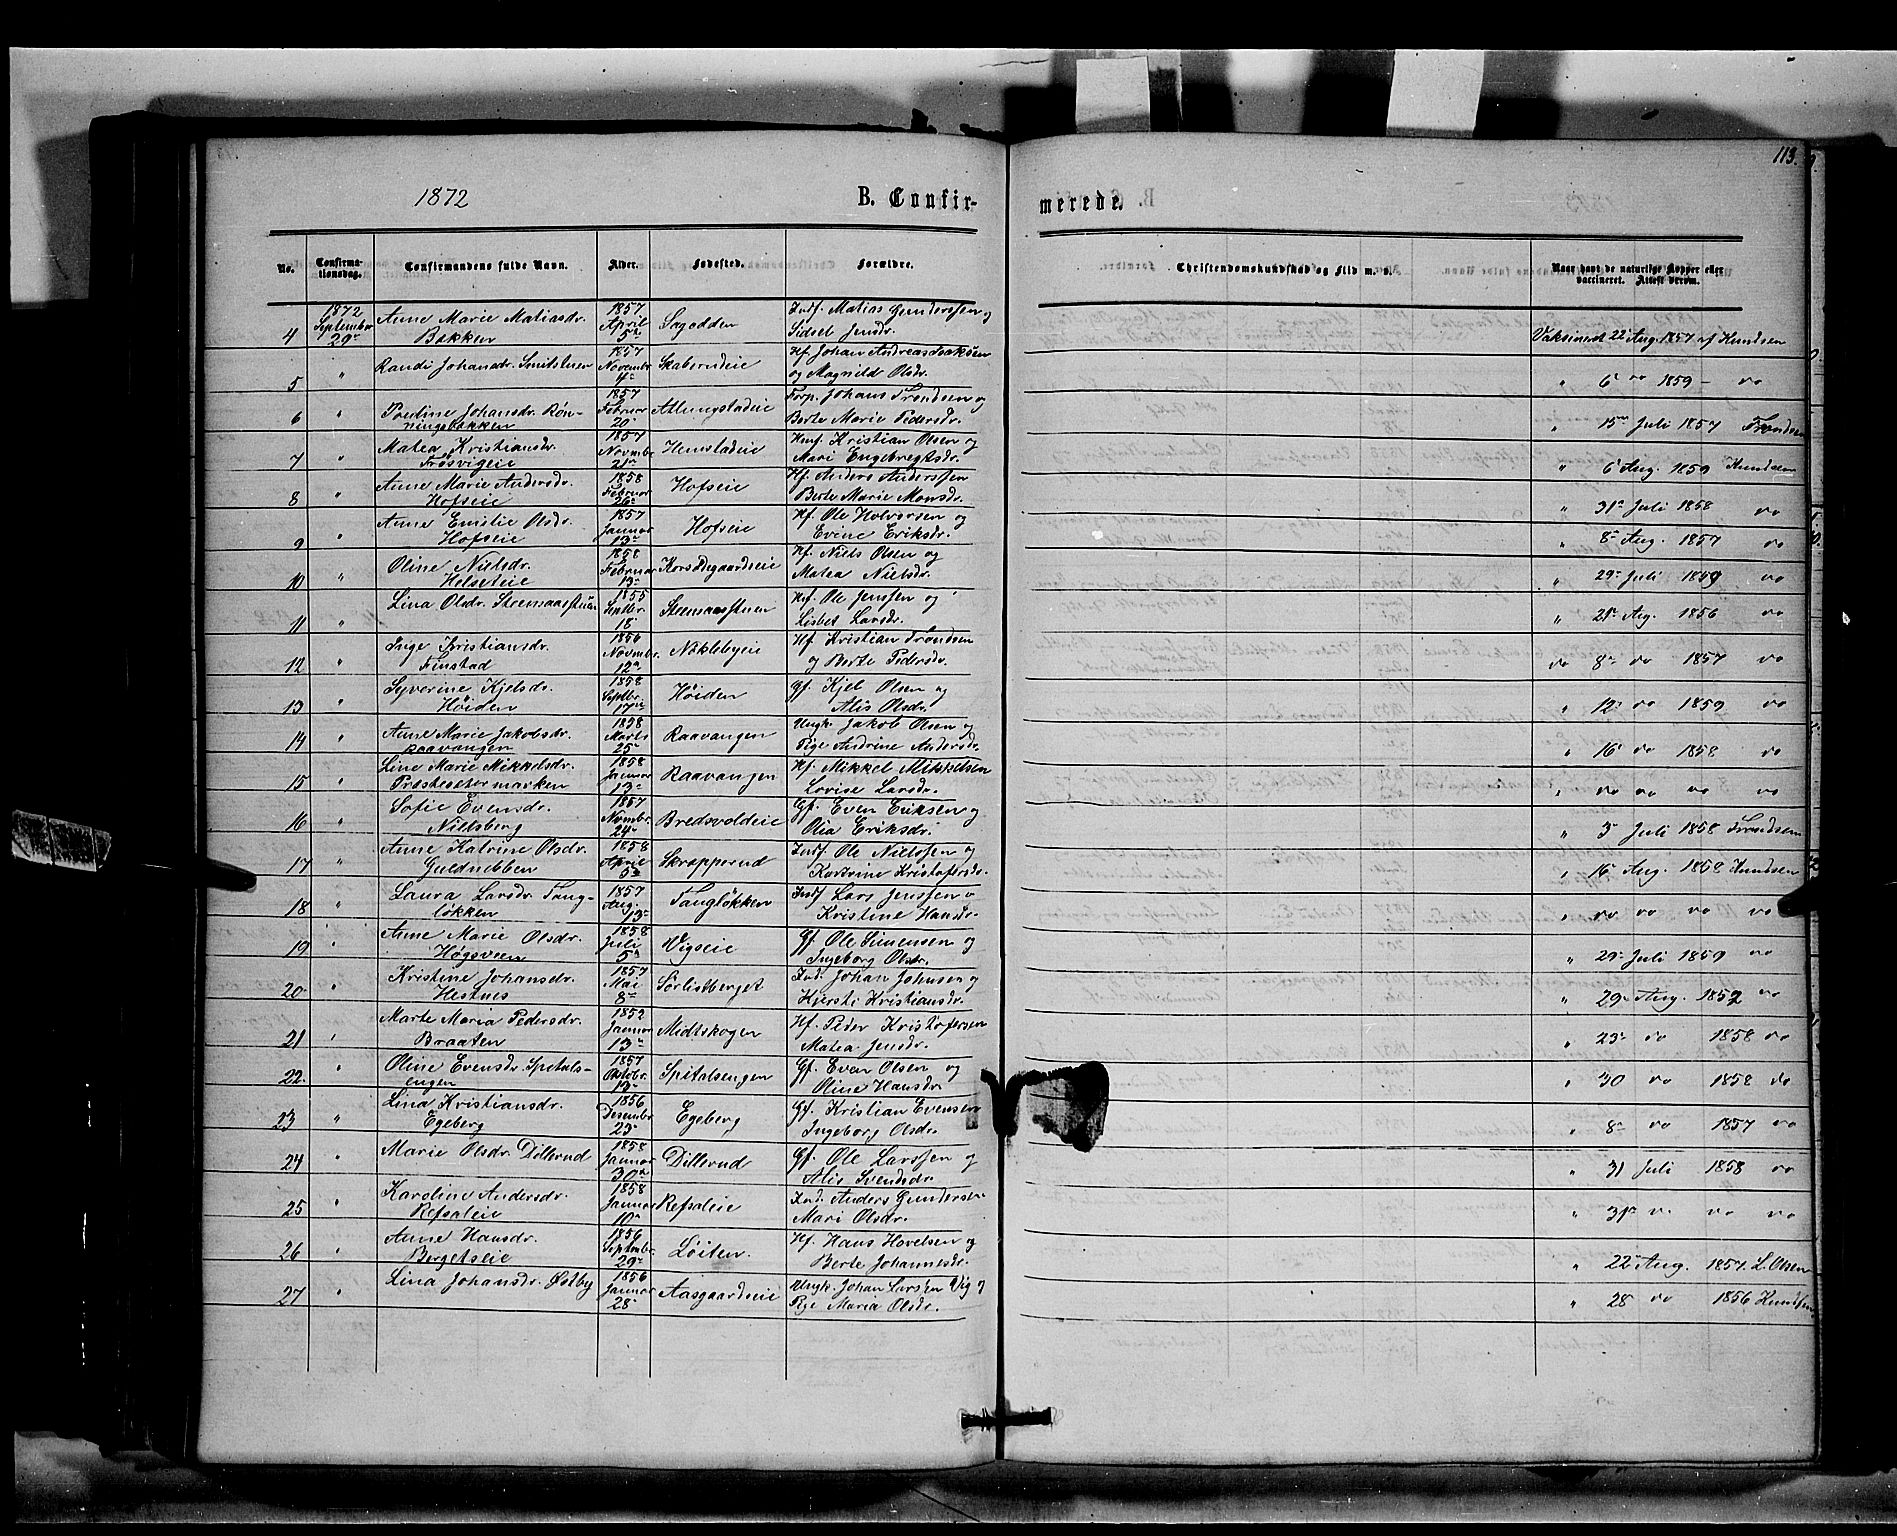 113.
1872
B. Confir-
merede.
No.
Confirma-
tionsdag.
Confirmandens fulde Navn.
Alder.
Fødested.
Forældre.
Christendomskundskab og Flid m. v.
Naar havt de naturlige Kopper eller
vaccineret. Attest derom.
1872 1857 Indf. Matias Gunderssen og
4 September 29de Anne Marie Matiasdr. Bakken April 5te Sagodden Sidsel Jensdr. Vaksineret 22 Aug. 1857 af Knudsen
5 " Randi Johansdr. Smitstuen 1857 Novembr 4de Skaberudeie Hf. Johan Andreas Isaksen og Magnild Olsdr. " 6 do 1859 - do
6 " Pauline Johansdr. Røn-
ningsbakken 1857 Februar 20 Atlungstadeie Forp. Johans Trondsen og Berte Marie Pedersdr. " 15 Juli 1857 Trondsen
7 " Matea Kristiansdr. Frøsvigeie 1857 Novmbr 21 Hemstadeie Huf. Kristian Olsen og Mari Engebregtsdr. " 6 Aug. 1859 Knudsen
8 " Anne Marie Andersdr. Hofseie 1858 Februar 26 Hofseie Hf. Anders Anderssen Berte Marie Monsdr. " 31 Juli 1858 do
9 " Anne Emilie Olsdr. Hofseie 1857 Januar 13 Hofseie Hf. Ole Halvorsen og Evine Eriksdr. " 8 Aug. 1857 do
10 " Oline Nielsdr. Helseteie 1858 Februar 19 Korsødegaardseie Hf. Niels Olsen og Matea Nielsdr. " 29 Juli 1859 do
11 " Lina Olsdr. Stemsaasstuen 1855 Septbr. 18 Stemsaasstuen Huf. Ole Jenssen og Lisbet Larsdr. " 21 Aug. 1856 do
12 " Inge Kristiansdr. Finstad 1856 Novmbr. 12 Niklebyeie Hf Kristian Trondsen og Berte Pedersdr. do 8 do 1857 do
13 " Syverine Kjelsdr. Høiden 1858 Septbr. 17 Høiden Gf. Kjel Olsen og Alis Olsdr. " 12 do 1859 do
14 " Anne Marie Jakobsdr. Raavangen 1858 Marts 25 Raavangen Ungk. Jakob Olsen og Pige Andrine Andersdr. " 16 do 1858 do
15 " Line Marie Mikkelsdr. Prestesætermarken 1858 Januar 13 Raavangen Hf. Mikkel Mikkelsen Lovise Larsdr. " do do do do
16 " Sofie Evensdr. Niltsberg 1857 Novmbr. 24 Bredsvoldeie Gf. Even Eriksen og Olia Eriksdr. " 3 Juli 1858 Trondsen
17 " Anne Katrine Olsdr. Guldnebben 1858 April 5 Skrapperud Indf. Ole Nielssen og Katrine Kristofersdr. " 16 Aug. 1858 Knudsen
18 " Laura Larsdr. Tang-
løkken 1857 Aug. 13 Tangløkken Indf Lars Jenssen o Kristine Hansdr. " do do do do
19 " Anne Marie Olsdr. Høgsveen 1858 Juli 5 Vigseie Gf Ole Simensen og Ingeborg Olsdr. " 29 Juli 1859 do
20 " Kristine Johansdr. Hestnes 1857 Mai 8 Sørlistberget Ind. Johan Johnsen og Kjersti Kristiansdr. " 29 Aug. 1857 do
21 " Marte Maria Pedersdr. Braaten 1857 Januar 13 Midtskogen Hf. Peder Kristofersen Matea Jensdr. " 23 do 1858 do
22 " Oline Evensdr. Spitals-
engen 1857 Oktobr. 19 Spitalsengen Gf. Even Olsen og Oline Hansdr. " 30 do 1858 do
23 " Lina Kristiansdr. Egeberg 1856 Desembr 25 Egeberg Gf. Kristian Evensen Ingeborg Olsdr. " 8 do 1857 do
24 " Marie Olsdr. Dillerud 1858 Januar 30 Dillerud Gf. Ole Larssen og Alis Svendsdr. " 31 Juli 1858 do
25 " Karoline Andersdr. Refsaleie 1858 Januar 10 Refsaleie Ind. Anders Gundersen Mari Olsdr. " 31 do do do
26 " Anne Hansdr. Bergetseie 1856 Septembr. 29 Løiten. Hf. Hans Hovelsen og Berte Johannesdr. " 22 Aug. 1857. L. Olsen
27 " Lina Johansdr. Østby 1856 Januar 28 Aasgaardseie Ungk. Johan Larsen Vig og Pige Maria Olsdr. " 28 do 1856 Knudsen